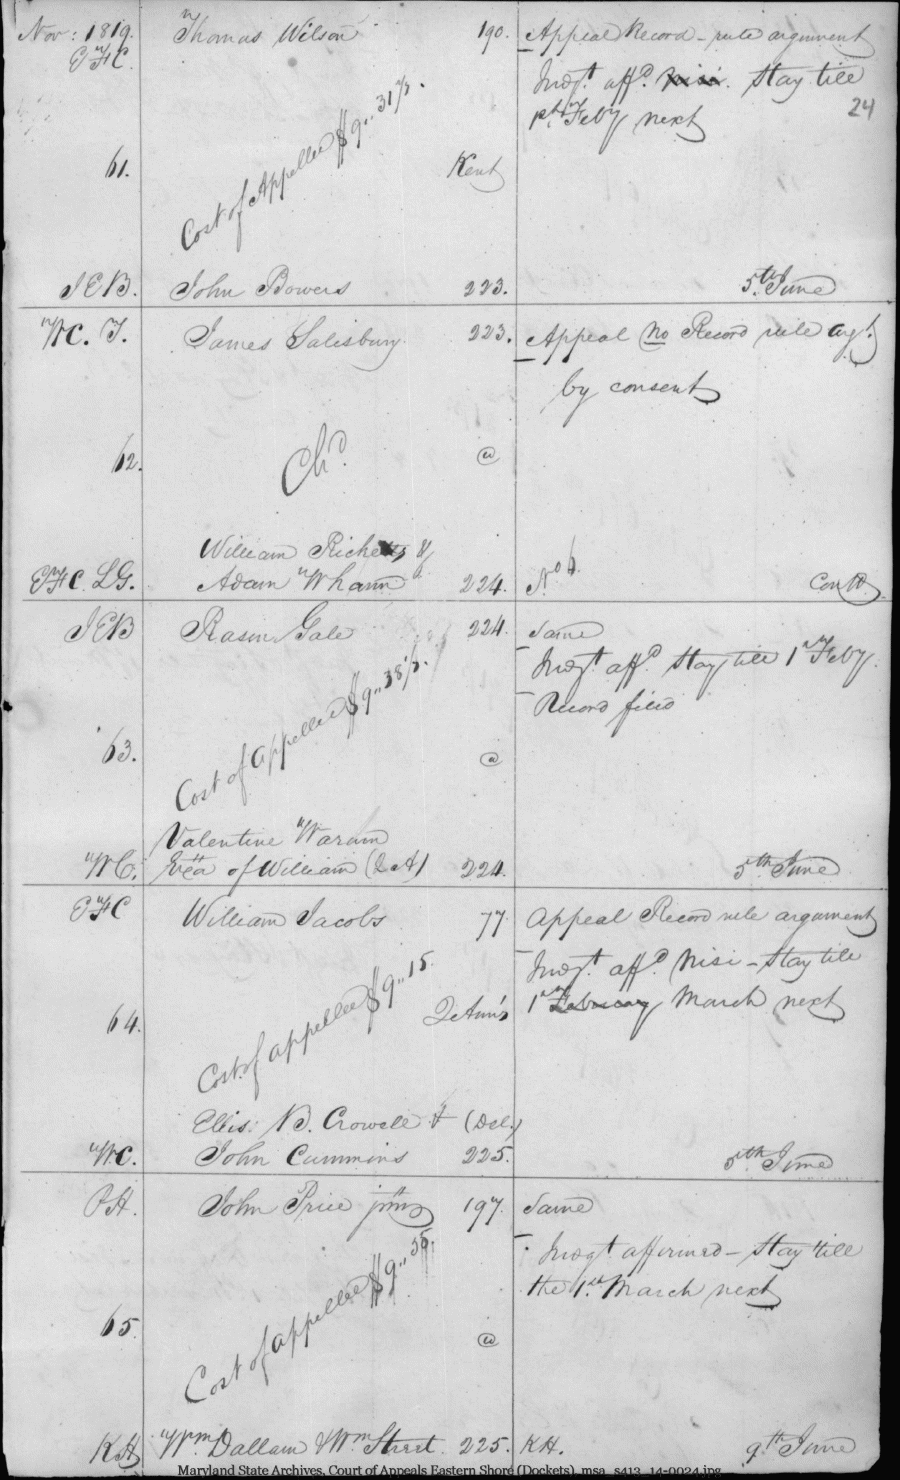 Nov: 1819. Thomas Wilson 190. Appeal Record - rule argument
EFC. Judgt. affd. nisi. Stay till
1st. Feby next 24
Cost of Appellee $9..31 1/3.
61. Kent
JEB. John Bowers 223. 5th. June
WC. T. James Salisbury 223. Appeal no Record rule argt.
by consent
Chd.
62. @
William Ricketts &
EFC. LG. Adam Whann 224. No 6. Contd.
JEB Rasin Gale 224. Same
Judgt. affd. Stay till 1st Feby.
Record filed
Cost of appellee $9..38 1/3.
63. @
Valentine
WC. of William (QA) 224. 5th June
EFC William Jacobs 77. Appeal Record rule argument
Judgt. affd. Nisi - Stay till
1st February March next
Cost of appellee $9..15.
64. QAnn's
Ellis. B. Crowell & (Del.)
WC. John Cummins 225. 5th June
PH. John Price junr 197. Same
Judgt affirmed - Stay till
the 1st March next
Cost of appellee $9..35.
65. @
KH Wm. Dallam & Wm Street 225. KH. 9th June
Maryland State Archives, Court of Appeals Eastern Shore (Dockets), msa_s413_14-0024.jpg